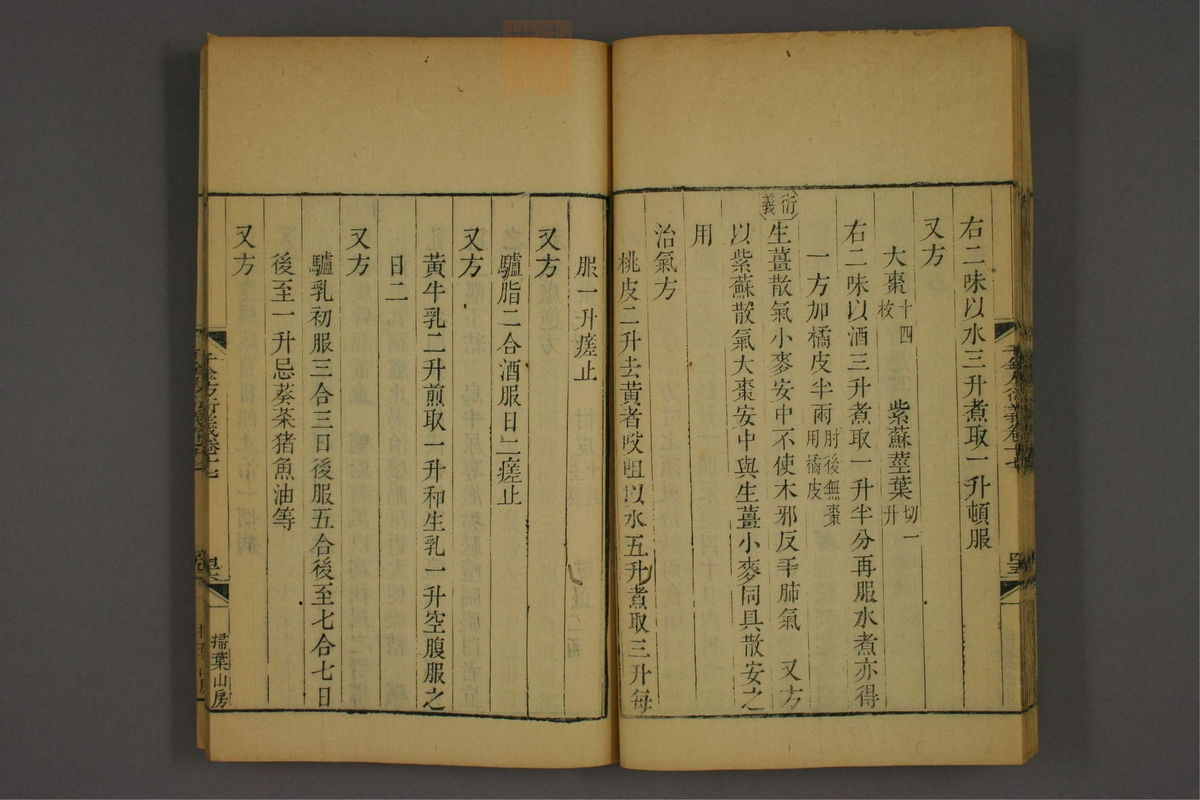 右二味以水三升煮取一升頓服
又方
大棗十四枚 紫蘇莖葉切一升
右二味以酒三升煮取一升半分再服水煮亦得
一方加橘皮半兩肘後無棗用橘皮
衍義
生薑散氣小麥安中不使木邪反乎肺氣 又方
以紫蘇散氣大棗安中與生薑小麥同具散安之
用
治氣方
桃皮二升去黄者㕮咀以水五升煮取三升每
服一升瘥止
又方
驢脂二合酒服日二瘥止
又方
黄牛乳二升煎取一升和生乳一升空腹服之
日二
又方
驢乳初服三合三日後服五合後至七合七日
後至一升忌葵菜猪魚油等
又方
千金方衍義卷十七
掃葉山房